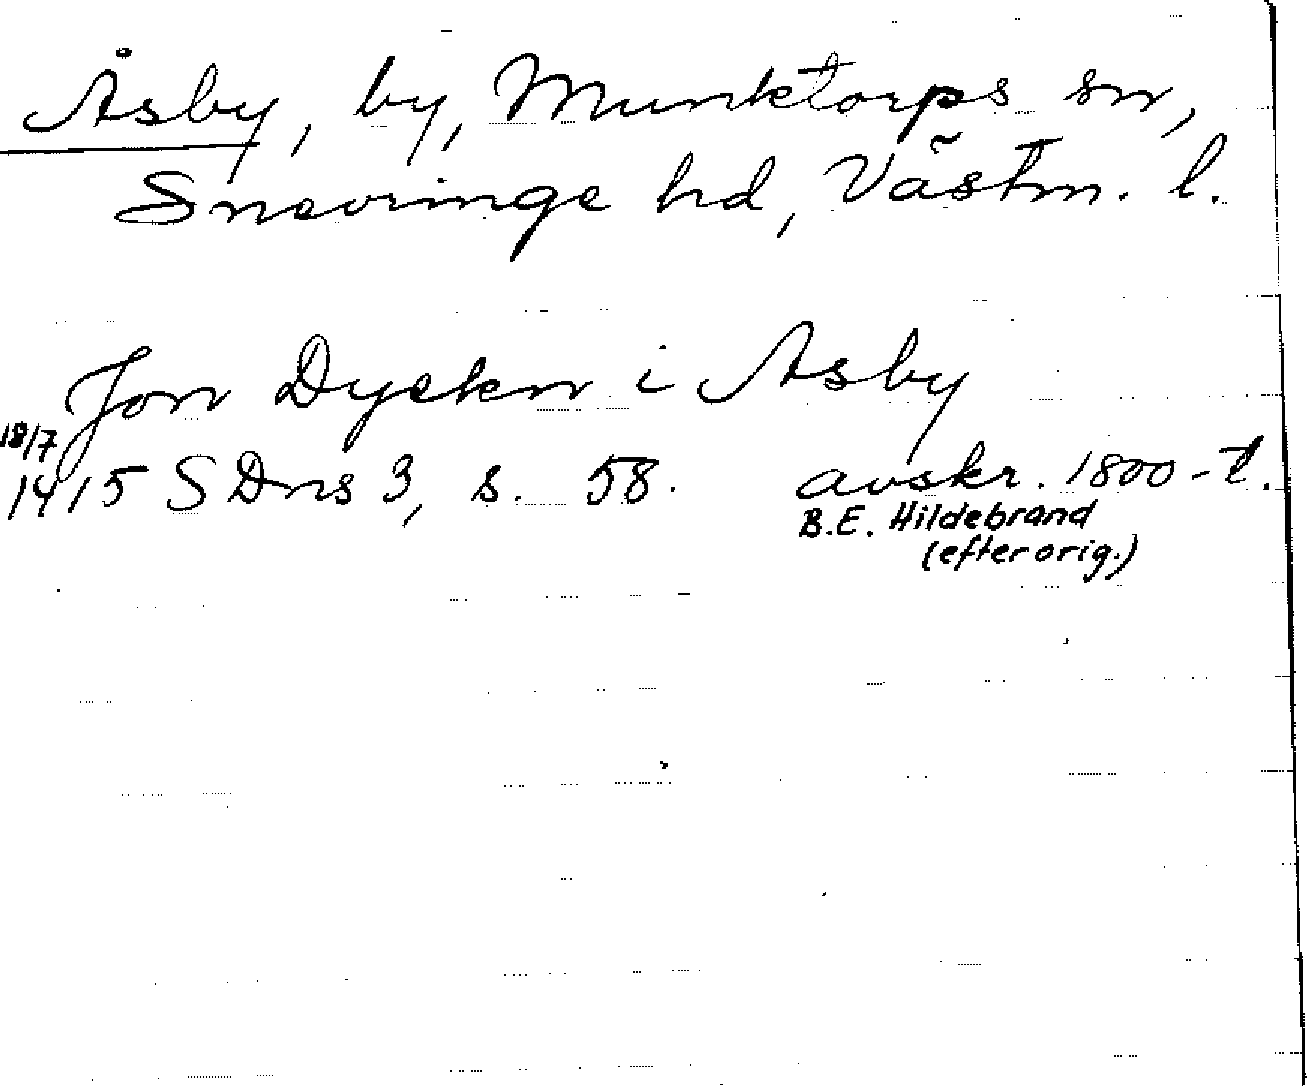 Åsby, by, Munktorps sn,
Snevringe hd, Västm. l.
Jon Dyekn i Asby
18/7
1415 SDns 3, s. 58. avskr. 1800-t.
B.E. Hildebrand
(efter orig.)